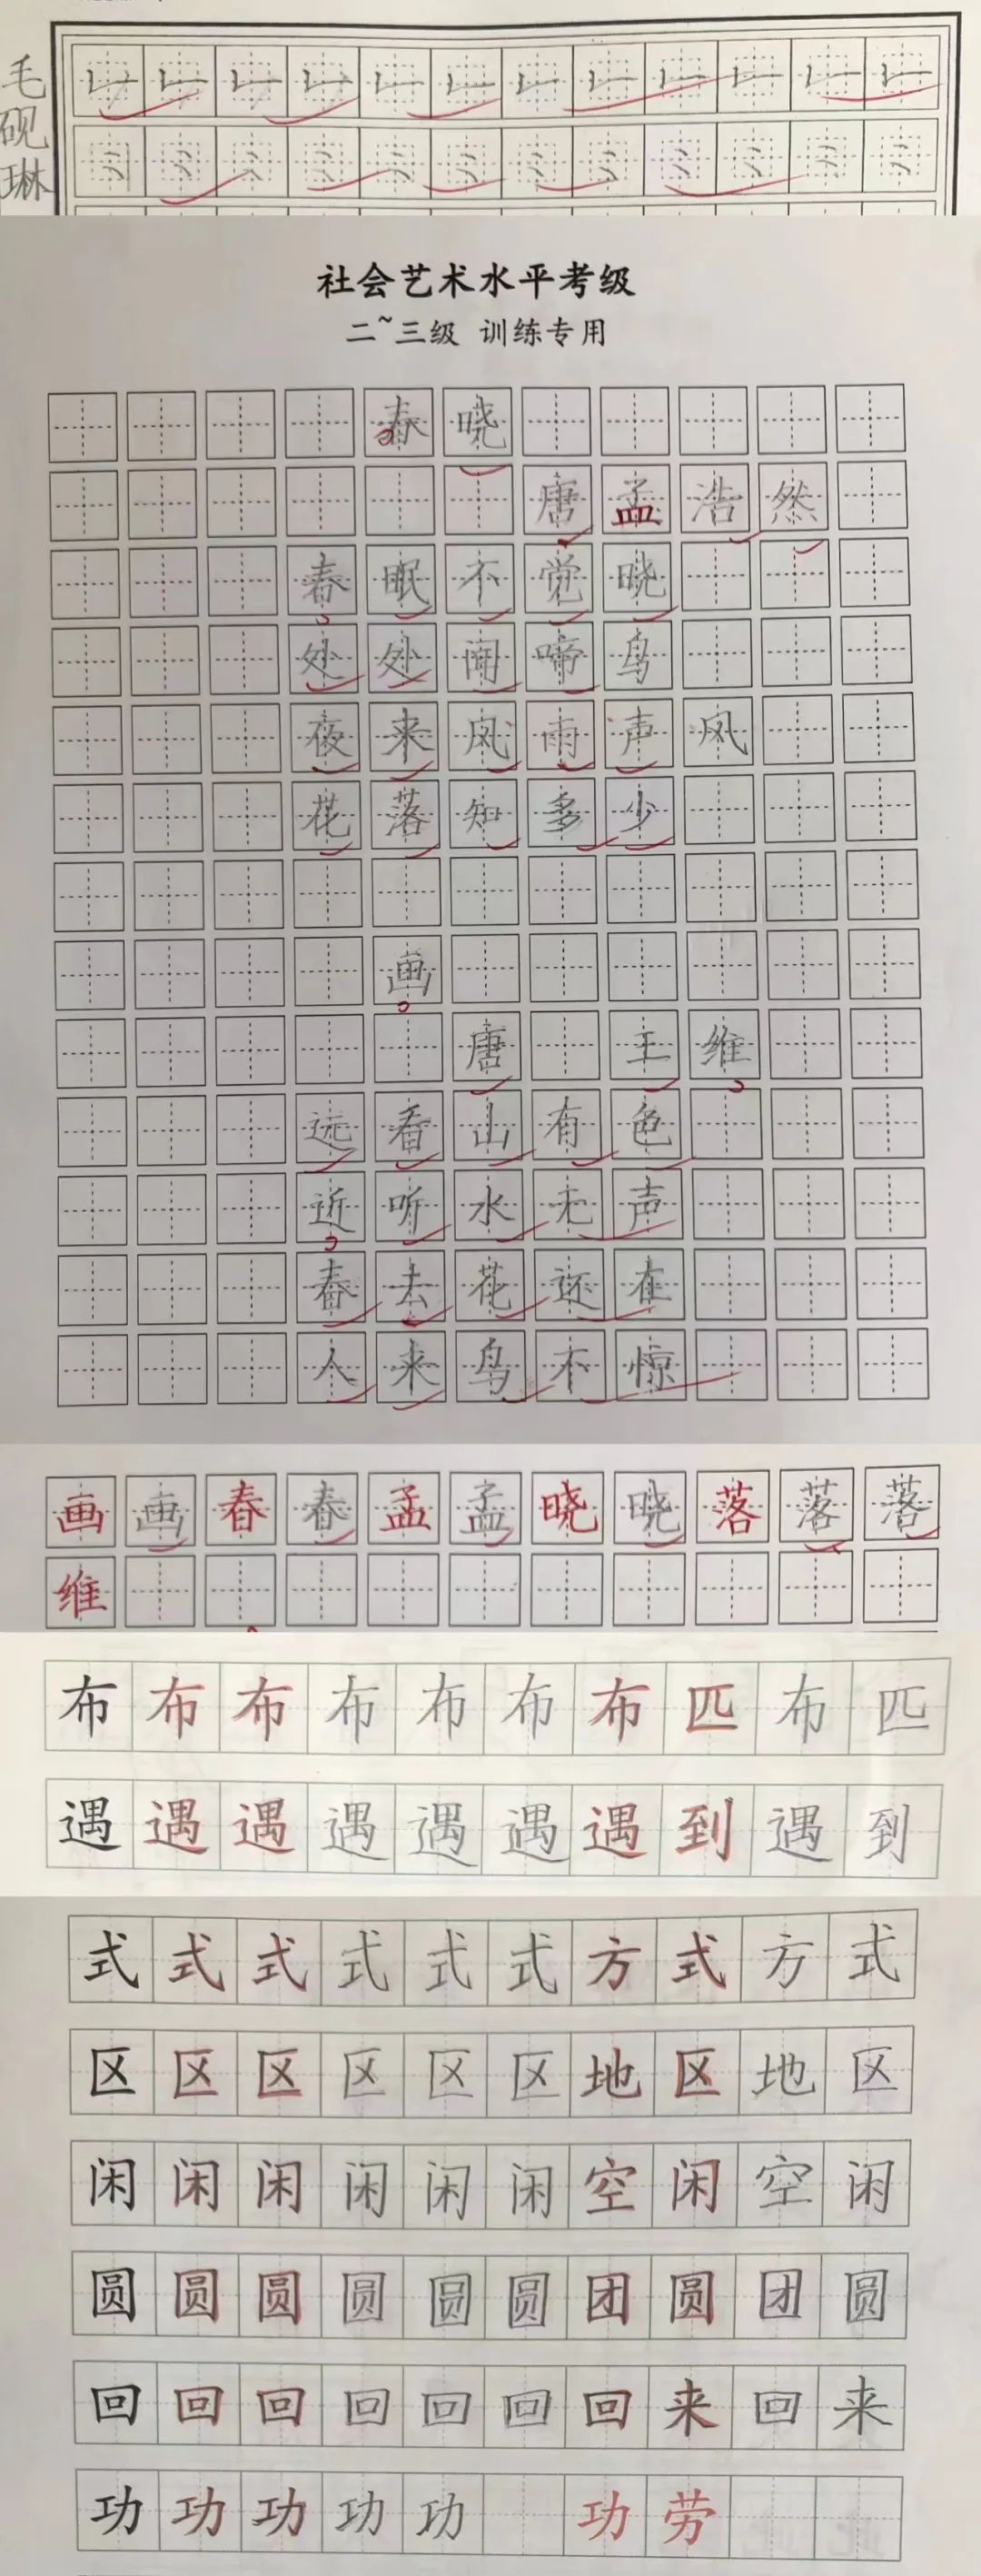 毛砚琳
社会艺术水平考级
二~三级 训练专用
春晓
唐孟浩然
春眠不觉晓
处处闻啼鸟
夜来风雨声风
花落知多少
画
唐 王维
远看山有色
近听水无声
春去花还在
人来鸟不惊
画画春春孟孟晓晓落落落
维
布布布布布布布匹布匹
遇遇遇遇遇遇遇到遇到
式式式式式式方式方式
区区区区区区地区地区
闲闲闲闲闲闲空闲空闲
圆圆圆圆圆圆团圆团圆
回回回回回回回来回来
功功功功功 功劳